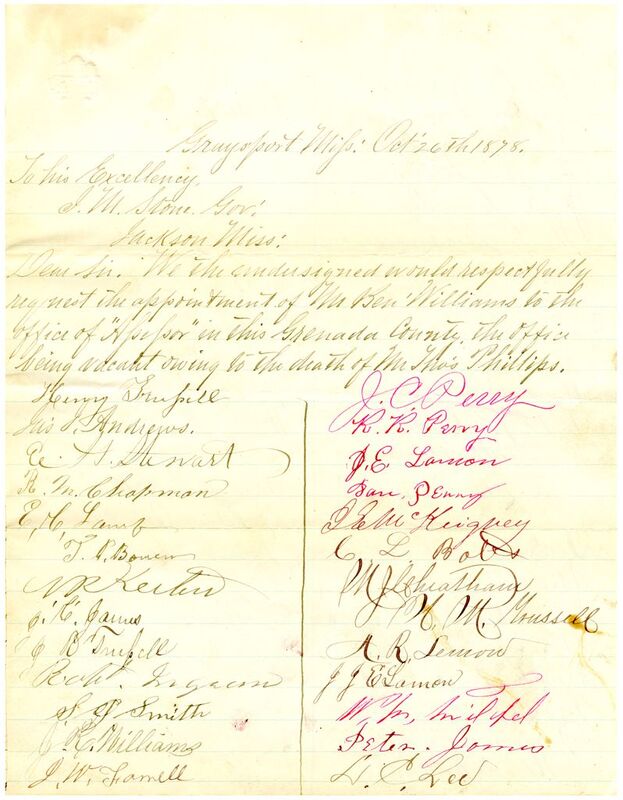 Graysport Miss: Oct 26th 1878.
To his Excellency,
J. M. Stone. Gov:
Jackson Miss:
Dear Sir. We the undersigned would respectfully
request the appointment of Mr Ben Williams to the
office of "Assessor" in this Grenada County, the office
being vacant owing to the death of Mr Tho's Phillips.
Henry Trussell
Jas J. Andrews.
Stewart
R. M. Chapman
E. H. Lamb
Bowen
J. H. James
Trussell
Robt. Ingram
Smith
Williams
J. W. Farrell
J. C. Perry
K. K. Perry
J. E. Lamon
Dan. Penny
C L Botts
Chiatham
M.
A. R. Lemon
J J E Lamon
Wm,
Peter. James
Lee